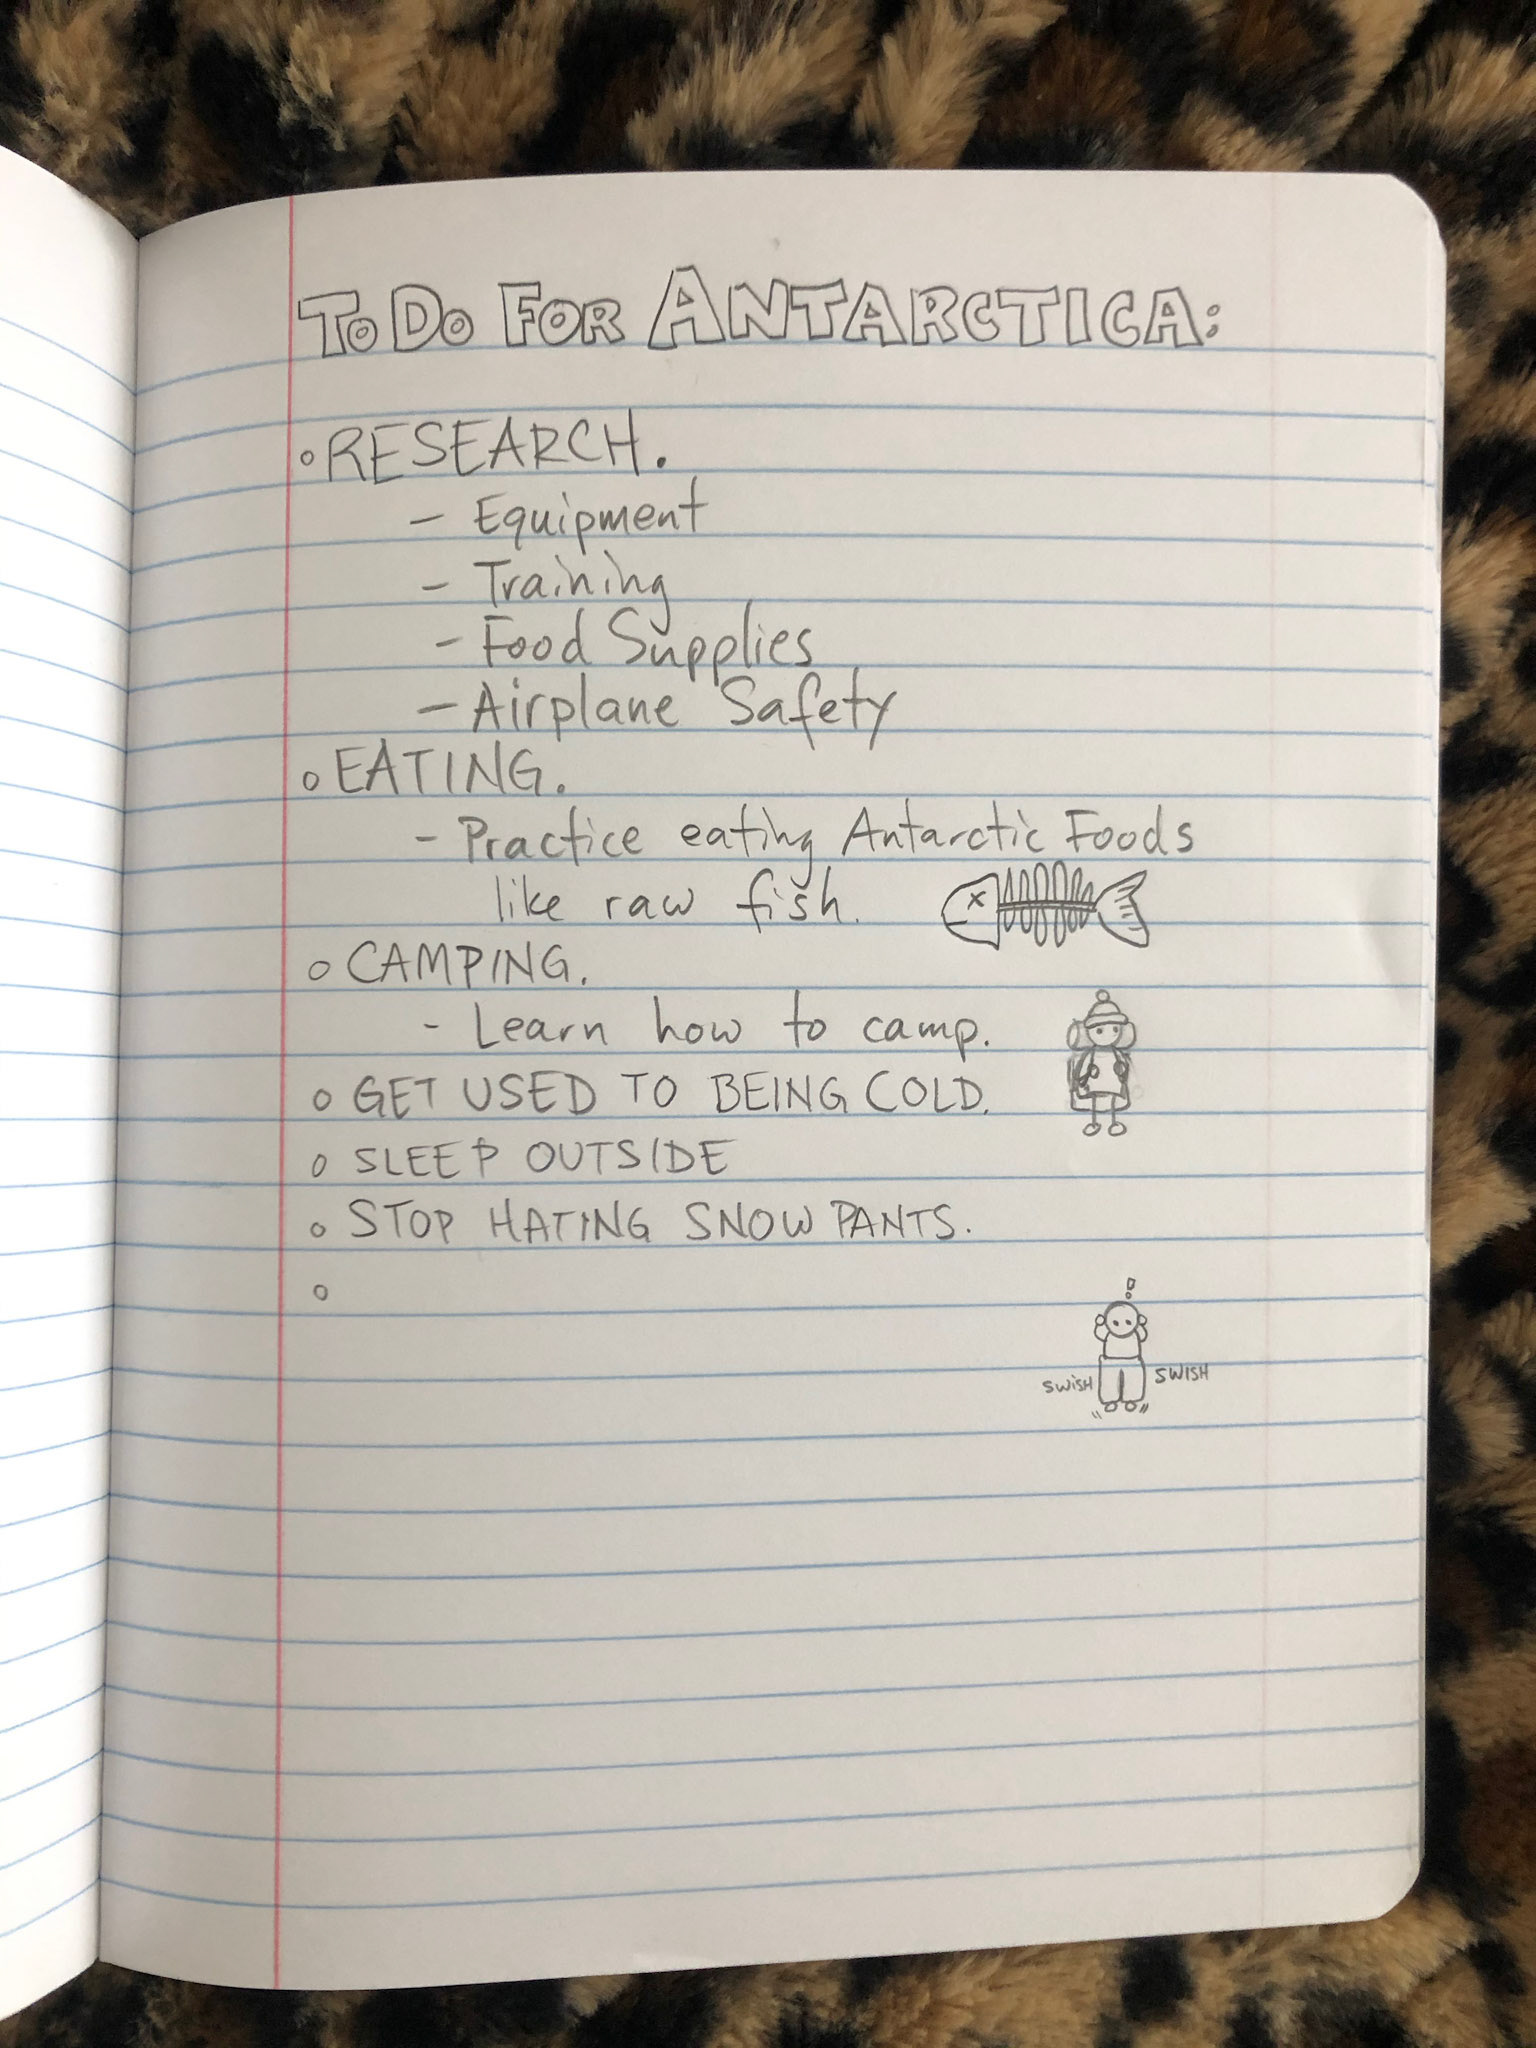 To Do For ANTARCTICA:
◦ RESEARCH.
– Equipment
– Training
– Food Supplies
– Airplane Safety
◦ EATING.
– Practice eating Antarctic Foods
like raw fish.
◦ CAMPING.
– Learn how to camp.
◦ GET USED TO BEING COLD.
◦ SLEEP OUTSIDE
◦ STOP HATING SNOW PANTS.
◦
!
SWISH SWISH